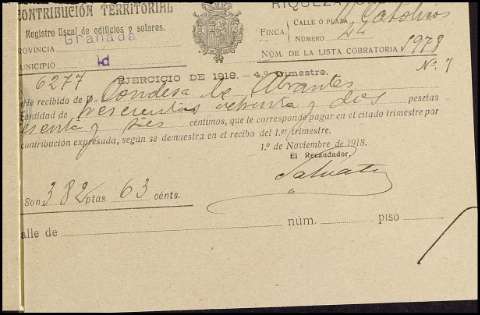 CONTRIBUCIÓN TERRITORIAL
RIQUEZA
Registro fiscal de edificios y solares.
PROVINCIA Granada
MUNICIPIO id
FINCA CALLE O PLAZA
NÚMERO 24
NÚM. DE LA LISTA COBRATORIA 1978
6277
Nº 7
EJERCICIO DE 1918. - 4.º trimestre.
He recibido de D. Condesa de Abrantes
cantidad de trescientas ochenta y dos pesetas
sesenta y tres céntimos, que le corresponde pagar en el citado trimestre por
contribución expresada, según se demuestra en el recibo del 1.er trimestre.
1.º de Noviembre de 1918.
El Recaudador,
Son 382 ptas 63 cénts.
alle de núm. piso